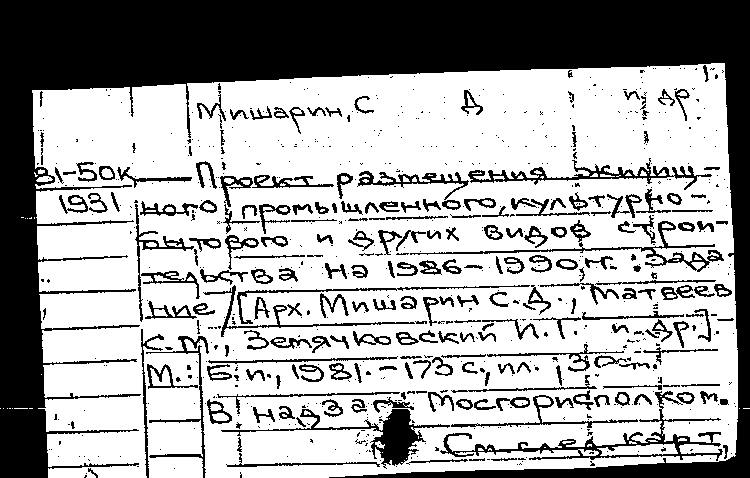 1.
Мишарин, С Д и др.
81-50к Проект размещения жилищ-
1931 ного, промышленного, культурно-
бытового и других видов строи-
тельства на 1986-1990 гг. : Зада-
ние / [Арх. Мишарин С.Д., Матвеев
С.М., Земячковский И.Г. и др.].
М.: Б.и., 1981. - 173 с., ил. ; 30 см.
В надзаг Мосгорисполком.
См. след. карт.